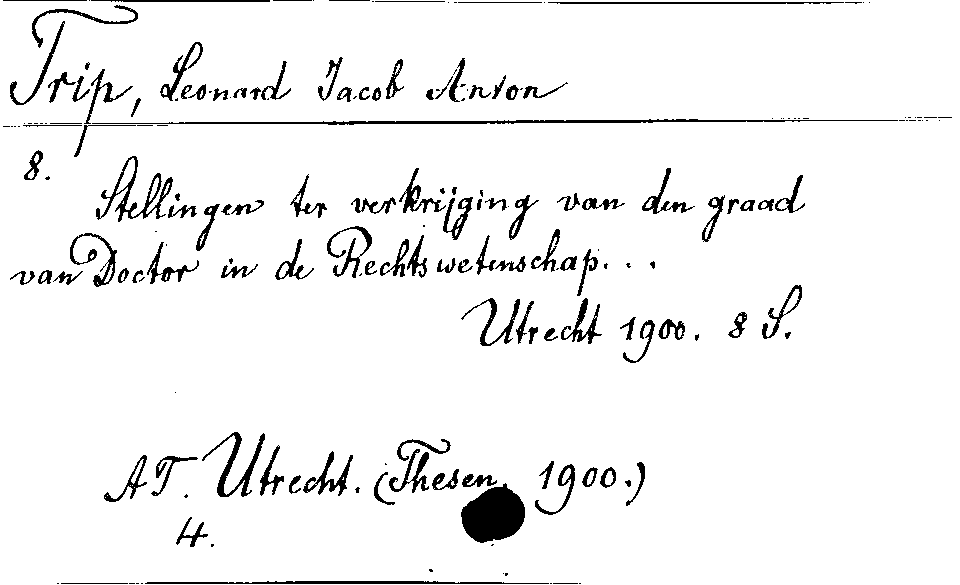 Trip, Leonard Jacob Anton
8.
Stellingen ter verkrijging van den graad
van Doctor in de Rechtswetenschap...
Utrecht 1900. 8 S.
AT. Utrecht. (Thesen. 1900.)
4.